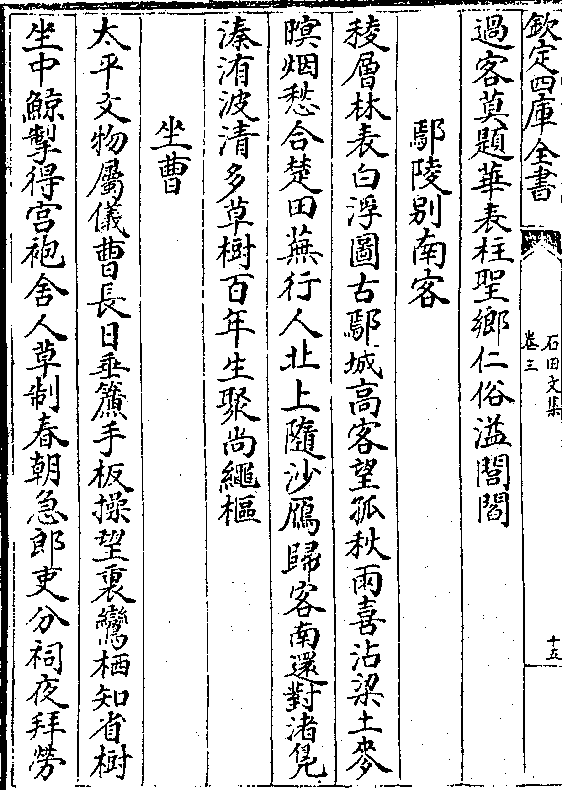 欽定四庫全書
石田文集
卷三
十五
過客莫題華表柱聖鄉仁俗溢閭閻
鄢陵别南客
稜層林表白浮圖古鄢城高客望孤秋雨喜沾梁土麥
暝烟愁合楚田蕪行人北上隨沙鴈歸客南還對渚凫
溱洧波清多草樹百年生聚尚繩樞
坐曹
太平文物屬儀曹長日垂簾手板操望裏鸞栖知省樹
坐中鯨掣得宫袍舍人草制春朝急郎吏分祠夜拜勞